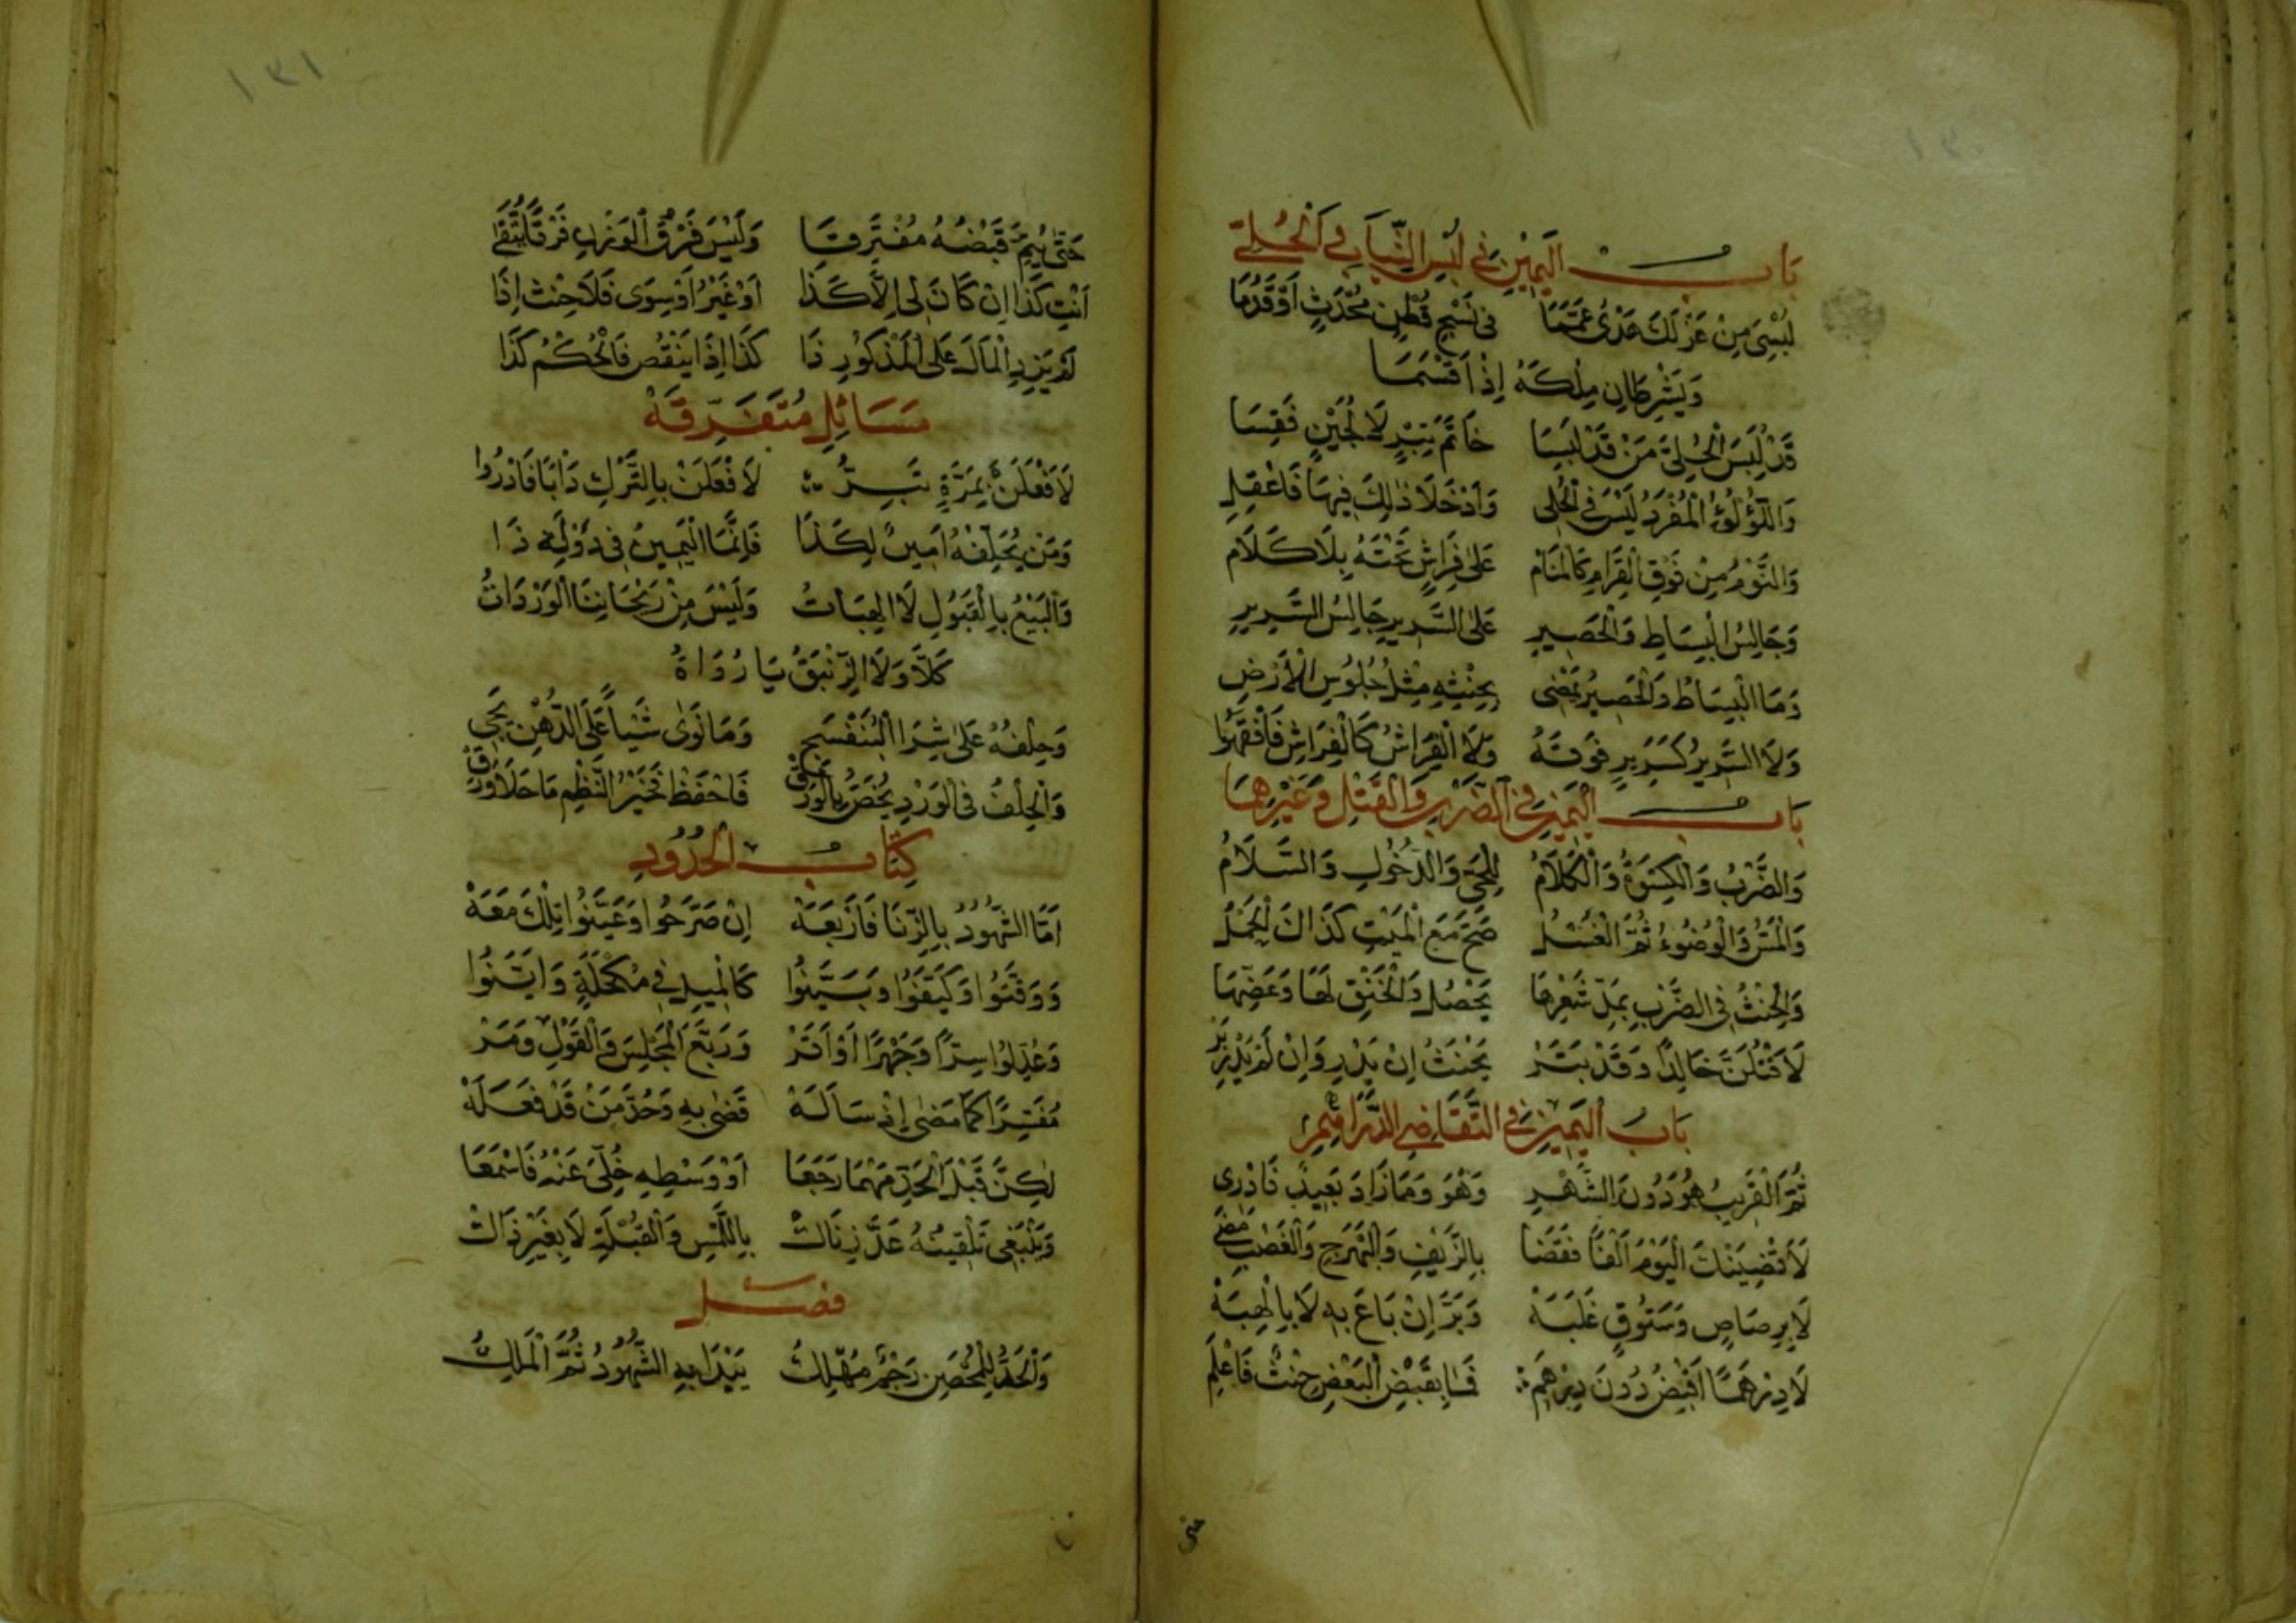 ١٣٠
بَابُ الْيَمِيْنِ فِي لُبْسِ الثِّيَابِ وَالْحُلِيِّ
لُبْسِيَ مِنْ غَزْلِكَ هَدْىٌ عَمَّمَا فِى نَسْجِ قُطْنٍ مُحْدَثٍ اَوْ قَدُمَا
وَيَشْرِطَانِ مِلْكَهُ اِذْ اَقْسَمَا
قَدْ لَبِسَ الْحُلِىَّ مَنْ قَدْ لَبِسَا خَاتَمَ تِبْرٍ لَا لُجَيْنٍ فَقِسَا
وَاللُّؤْلُؤُ الْمُفْرَدُ لَيْسَ فِى الْحُلِى وَاَدْخَلَا ذٰلِكَ فِيهَا فَاعْقِلِ
وَالنَّوْمُ مِنْ فَوْقِ الْقِرَامِ كَالْمَنَامْ عَلٰى فِرَاشٍ تَحْتَهُ بِلَا كَلَامْ
وَجَالِسُ الْبِسَاطِ وَالْحَصِيرِ عَلَى السَّرِيرِ جَالِسُ السَّرِيرِ
وَمَا الْبِسَاطُ وَالْحَصِيرُ يَقْضِى بِحِنْثِهِ مِثْلَ جُلُوسِ الْاَرْضِ
وَلَا السَّرِيرُ كَسَرِيرٍ فَوْقَهُ وَلَا الْفِرَاشُ كَالْفِرَاشِ فَافْقَهُوا
بَابُ الْيَمِيْنِ فِي الضَّرْبِ وَالْقَتْلِ وَغَيْرِهِمَا
وَالضَّرْبُ وَالْكِسْوَةُ وَالْكَلَامُ لِلْحَىِّ وَالدُّخُولُ وَالسَّلَامُ
وَالْمَسُّ وَالْوُضُوءُ ثُمَّ الْغُسْلُ صَحَّ مَعَ الْمَيْتِ كَذَاكَ الْحَمْلُ
وَالْحِنْثُ فِى الضَّرْبِ بِمَدِّ شَعْرِهَا يَحْصُلُ وَالْخَنْقِ لَهَا وَعَضِّهَا
لَاَقْتُلَنَّ خَالِدًا وَقَدْ بَتَرْ يَحْنَثُ اِنْ يَدْرِ وَاِنْ لَمْ يَدْرِ بَرّ
بَابُ الْيَمِيْنِ فِي التَّقَاضِي الدَّرَاهِمِ
ثُمَّ الْقَرِيبُ هُوَ دُونَ الشَّهْرِ وَهْوَ وَمَا زَادَ بَعِيدٌ فَادْرِى
لَاَقْضِيَنْكَ الْيَوْمَ اَلْفًا فَقَضَا بِالزَّيْفِ وَالنَّبَهْرَجِ وَالْغَصْبِ مَضَى
لَا بِرَصَاصٍ وَسَتُّوقٍ غَلَبَهْ وَبَرَّ اِنْ بَاعَ بِهِ لَا بِالْهِبَهْ
لَا دِرْهَمًا اَقْبِضُ دُونَ دِرْهَمِ فَمَا بِقَبْضِ الْبَعْضِ حِنْثٌ فَاعْلَمِ
حتى
١٣١
حَتّٰى يُتِمَّ قَبْضَهُ مُفْتَرِقَا وَلَيْسَ فَرْقُ الْوَزْنِ فَرْقًا يُتَّقٰى
اَنْتِ كَذَا اِنْ كَانَ لِى اِلَّا كَذَا اَوْ غَيْرُ اَوْ سِوَى فَلَا حِنْثَ اِذَا
لَمْ يَزِدِ الْمَالُ عَلَى الْمَذْكُورِ ذَا كَذَا اِذَا يَنْقُصُ فَالْحُكْمُ كَذَا
مَسَائِلُ مُتَفَرِّقَهْ
لَاَفْعَلَنَّ بِمَرَّةٍ تَبِرُّ لَا فْعَلَنْ بِالتَّرْكِ دَاْبًا فَادْرُوا
وَمَنْ يُحَلِّفْهُ اَمِيرٌ لِكَذَا فَاِنَّمَا الْيَمِينُ فِى دَوْلَةِ ذَا
وَالْبَيْعُ بِالْقَبُولِ لَا الْهِبَاتُ وَلَيْسَ مِنْ رَيْحَانِنَا الْوَرْدَاتُ
كَلَّا وَلَا الزَّنْبَقُ يَا رُوَاةُ
وَحِلْفُهُ عَلٰى شِرَا الْبَنَفْسَجِ وَمَا نَوٰى شَيْأً عَلَى الدُّهْنِ يَجِى
وَالْحِلْفُ فِى الْوَرْدِ يُخَصُّ بِالْوَرَقْ فَاحْفَظْ فَخَيْرُ النَّظْمِ مَا حَلَا وَرَقْ
كِتَابُ الْحُدُودِ
اَمَّا الشُّهُودُ بِالزِّنَا فَاَرْبَعَهْ اِنْ صَرَّحُوا وَعَيَّنُوا تِلْكَ مَعَهْ
وَوَقَّتُوا وَكَيَّفُوا وَبَيَّنُوا كَالْمِيلِ فِى مُكْحُلَةٍ وَاَيْقَنُوا
وَعُدِّلُوا سِرًّا وَجَهْرًا اَوْ اَقَرّ وَرَبَّعَ الْمَجْلِسَ وَالْقَوْلَ وَمَرّ
مُفَسَّرًا كَمَا مَضٰى اِذْ سَاَلَهْ قَضٰى بِهِ وَحُدَّ مَنْ قَدْ فَعَلَهْ
لٰكِنَّ قَبْلَ الْحَدِّ مَهْمَا رَجَعَا اَوْ وَسْطِهِ خُلِّىَ عَنْهُ فَاسْمَعَا
وَيَنْبَغِى تَلْقِينُهُ عَلَّ زِنَاكْ بِاللَّمْسِ وَالْقُبْلَةِ لَا بِغَيْرِ ذَاكْ
فصل
وَالْحَدُّ لِلْمُحْصَنِ رَجْمٌ مُهْلِكُ يَبْدَا بِهِ الشُّهُودُ ثُمَّ الْمَلِكُ